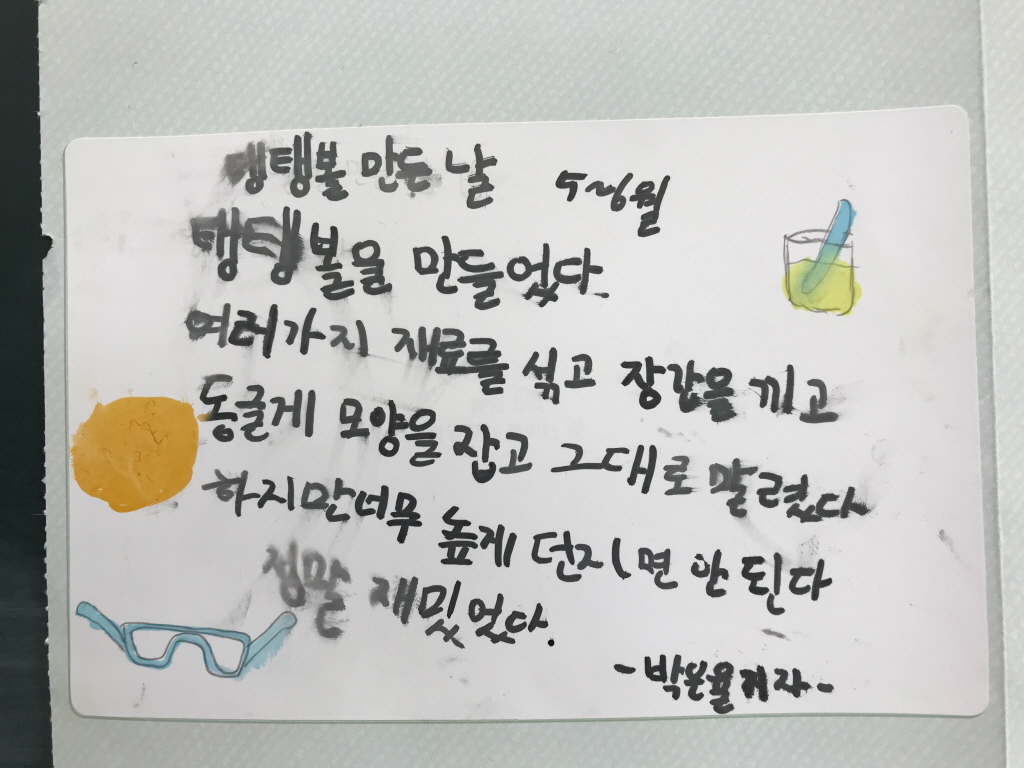 탱탱볼 만든 날
탱탱볼을 만들었다.
여러가지 재료를 섞고 장갑을 끼고
동글게 모양을 잡고 그대로 말렸다
하지만 너무 높게 던지면 안 된다
정말 재밌었다.
-박은율기자-